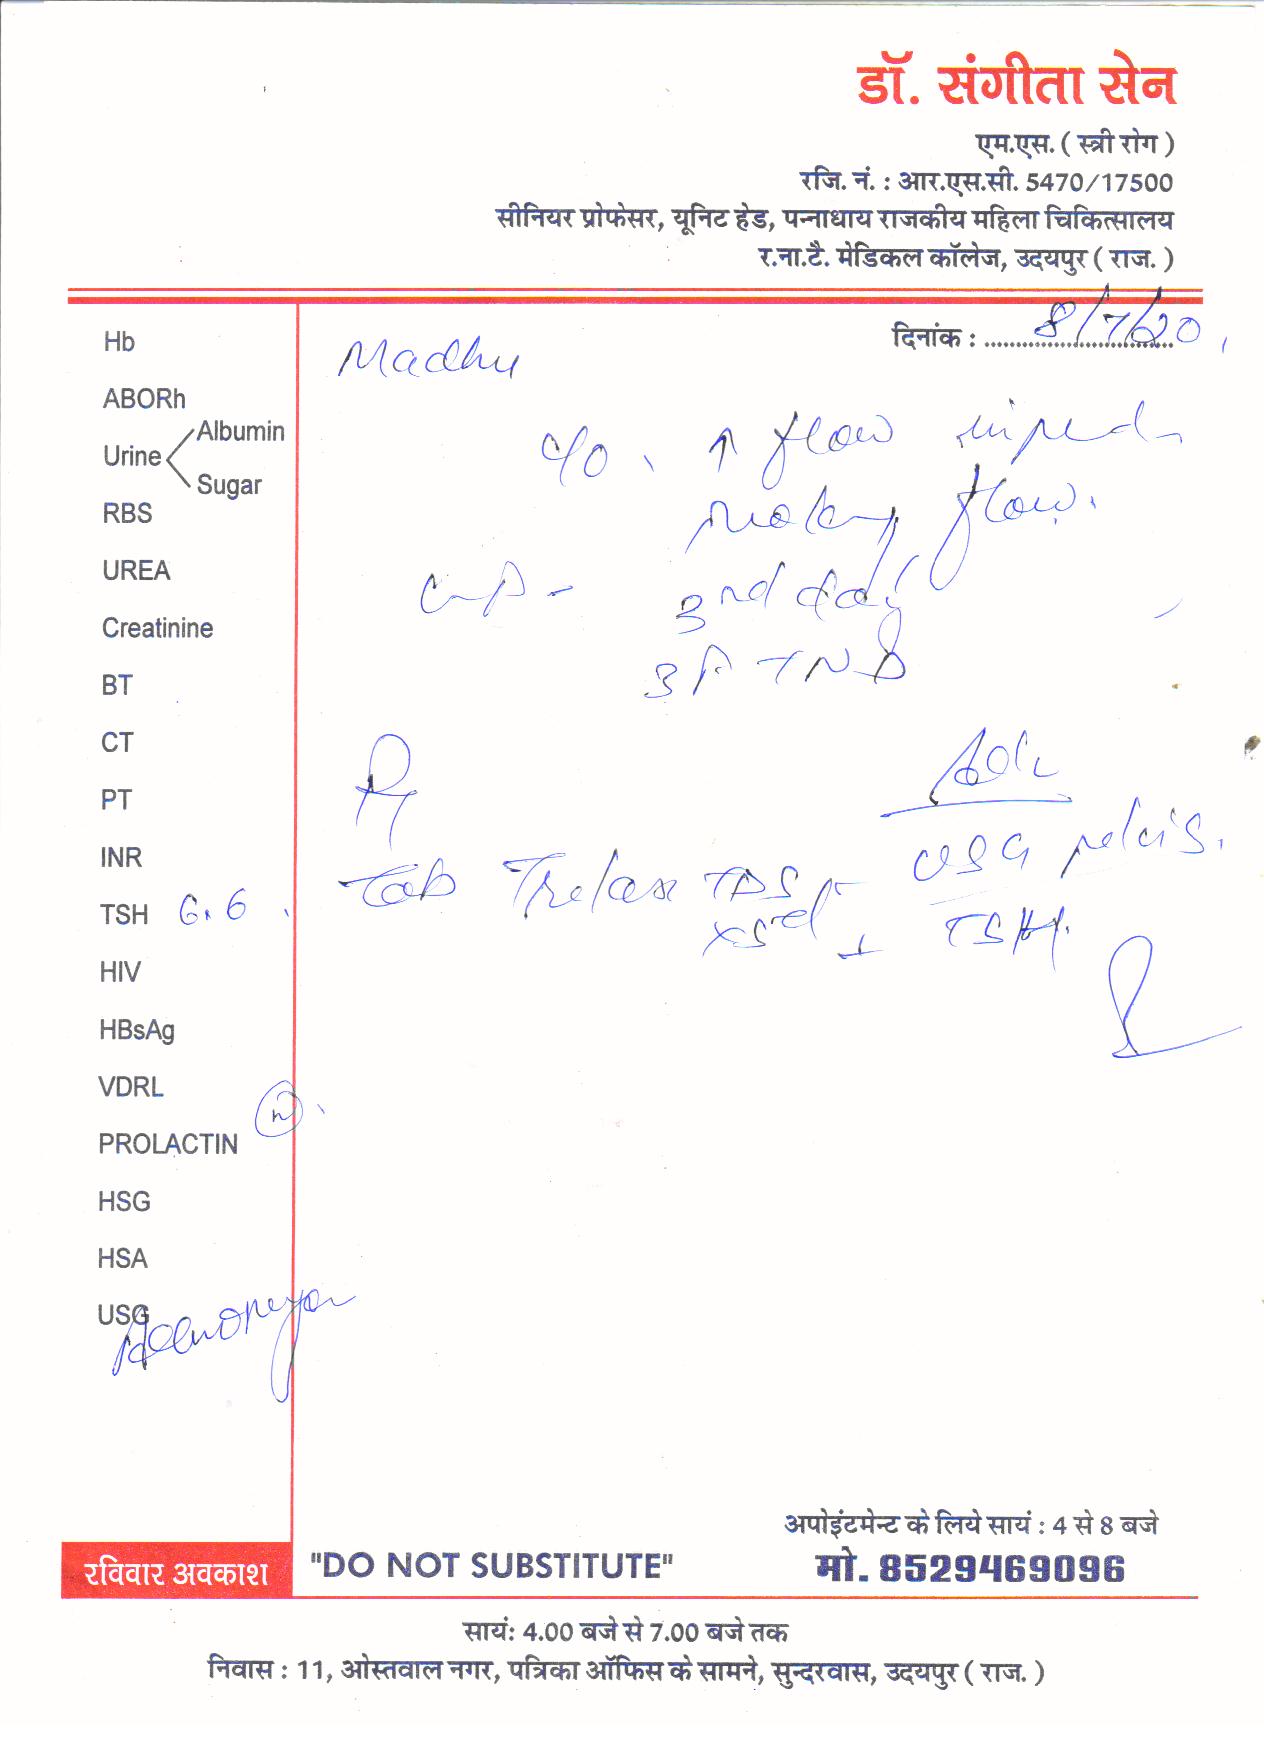 डॉ. संगीता सेन
एम.एस. ( स्त्री रोग )
रजि. नं. : आर.एस.सी. 5470/17500
सीनियर प्रोफेसर, यूनिट हेड, पन्नाधाय राजकीय महिला चिकित्सालय
र.ना.टै. मेडिकल कॉलेज, उदयपुर ( राज. )
दिनांक : 8/7/20
Madhu
c/o ↑ flow
flow.
3rd day
3 FTND
Rx
Adv
Tab Trelax TDS
x 5d
USG pelvis.
+ TSH.
Hb
ABORh
Urine Albumin
Sugar
RBS
UREA
Creatinine
BT
CT
PT
INR
TSH 6.6
HIV
HBsAg
VDRL
PROLACTIN n
HSG
HSA
USG
Adenomyo
अपोइंटमेन्ट के लिये सायं : 4 से 8 बजे
रविवार अवकाश "DO NOT SUBSTITUTE" मो. 8529469096
सायं: 4.00 बजे से 7.00 बजे तक
निवास : 11, ओस्तवाल नगर, पत्रिका ऑफिस के सामने, सुन्दरवास, उदयपुर ( राज. )